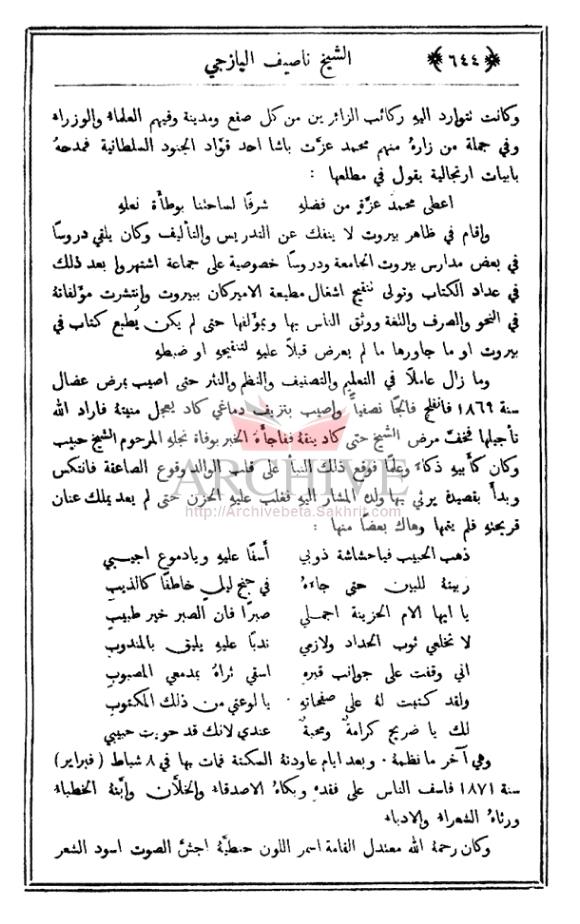 ﴿٦٤٤﴾ الشيخ ناصيف اليازجي
وكانت نتوارد اليهِ ركائب الزائرين من كل صقع ومدينة وفيهم العلماء والوزراء
وفي جملة من زاره منهم محمد عزَّت باشا احد قوَّاد الجنود السلطانية فمدحهُ
بابيات ارتجالية يقول في مطلعها :
اعطى محمدُ عزَّةٍ من فضلهِ شرفًا لساحئنا بوطأَة نعلهِ
واقام في ظاهر بيروت لا ينفك عن التدريس والتأليف وكان يلقي دروسًا
في بعض مدارس بيروت الجامعة ودروسًا خصوصية على جماعة اشتهروا بعد ذلك
في عداد الكتاب وتولى ننقيح اشغال مطبعة الاميركان ببيروت وانتشرت مؤلفاتهُ
في النحو والصرف واللغة ووثق الناس بها وبمؤلفها حتى لم يكن يُطبع كتاب في
بيروت او ما جاورها ما لم يعرض قبلاً عليهِ لتنقيحهِ او ضبطهِ
وما زال عاملاً في التعليم والتصنيف والنظم والنثر حتى اصيب بمرض عضال
سنة ١٨٦٩ فانفلج فالجًا نصفيًّا واصيب بنزيف دماغي كاد يعجل منيتهُ فاراد الله
تأجيلها فخفَّ مرض الشيخ حتى كاد ينقهُ ففاجأَهُ الخبر بوفاة نجلهِ المرحوم الشيخ حبيب
وكان كأَبيهِ ذكاءً وعلمًا فوقع ذلك النبأ على قلب الوالد وقوع الصاعقة فانتكس
وبدأ بقصيدة يرثي بها ولده المشار اليهِ فغلب عليهِ الحزن حتى لم يعد يملك عنان
قريحتهِ فلم يتمها وهاك بعضًا منها :
ذهب الحبيب فياحشاشة ذوبي أسفًا عليهِ ويادموع اجيبي
ربيتهُ للبين حتى جاءَهُ في جنح ليلٍ خاطفًا كالذيبِ
يا ايها الام الحزينة اجملي صبرًا فان الصبر خير طبيبِ
لا تخلعي ثوب الحداد ولازمي ندبًا عليهِ يليق بالمندوبِ
اني وقفت على جوانب قبرهِ اسقي ثراهُ بمدمعي المصبوبِ
ولقد كتبت لهُ على صفحاتهِ يا لوعتي من ذلك المكتوبِ
لك يا ضريح كرامةٌ ومحبةٌ عندي لانك قد حويت حبيبي
وهي آخر ما نظمهُ . وبعد ايام عاودتهُ السكتة فمات بها في ٨ شباط (فبراير)
سنة ١٨٧١ فاسف الناس على فقدهِ وبكاهُ الاصدقاء والخلَّان وابَّنهُ الخطباء
ورثاهُ الشعراء والادباء
وكان رحمهُ الله معتدل القامة اسمر اللون حنطيَّهُ اجشَّ الصوت اسود الشعر
ARCHIVE
http://Archivebeta.Sakhrit.com